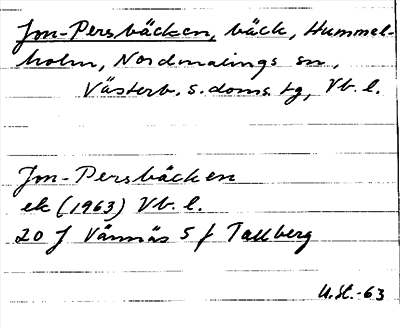 Jon-Persbäcken, bäck, Hummel-
holm, Nordmalings sn,
Västerb. s. doms. tg, Vb. l.
Jon-Persbäcken
ek (1963) Vb. l.
20 J Vännäs 5 f Tallberg
U.St.-63